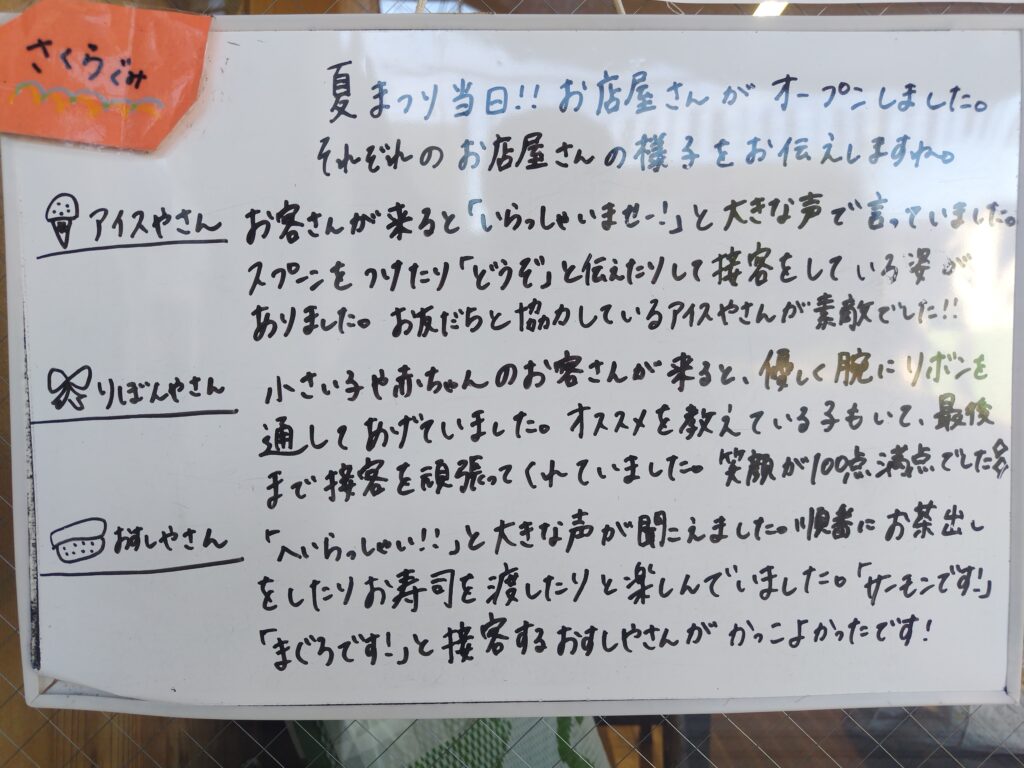 さくらぐみ
夏まつり当日!! お店屋さんが オープンしました。
それぞれの お店屋さんの様子を お伝えしますね。
アイスやさん お客さんが来ると「いらっしゃいませー!」と大きな声で言っていました。
スプーンを つけたり「どうぞ」と伝えたりして接客をしている姿が
ありました。お友だちと協力しているアイスやさんが素敵でした!!
りぼんやさん 小さい子や赤ちゃんのお客さんが来ると、優しく腕にリボンを
通してあげていました。オススメを教えている子もいて、最後
まで接客を頑張ってくれていました。笑顔が100点満点でした
おすしやさん 「へいらっしゃい!!」と大きな声が聞こえました。順番に お茶出し
をしたりお寿司を渡したりと楽しんでいました。「サーモンです!」
「まぐろです!」と接客するおすしやさんが かっこよかったです!